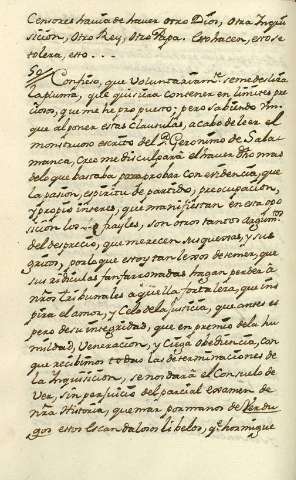 Censores havia de haver otro Dios, otra Inqui
sicion, otro Rey, otro Papa. Esto hacen, esto se
tolera, esto....
59 Confieso, que voluntariam.te se me desliza
la pluma, que quisiera contener en limites pre
cisos, que me he propuesto: pero sabiendo Vm.
que al poner estas clausulas, acabo de leer el
monstruoso escrito del P. Geronimo de Sala
manca, creo me disculpará el haver dho mas
de lo que bastaba para probar con evidencia, que
la pasion, espiritu de partido, preocupacion,
y propio interes, que manifiestan en esta opo
sicion los frayles, son otros tantos argum.tos
del desprecio, que merecen sus quexas, y sus
gritos, por lo que estoy tan lexos de temer, que
sus ridiculas fanfarronadas hagan perder à
nrõs Tribunales aquella fortaleza, que ins
pira el amor, y Celo de la justicia, que antes es
pero de su integridad, que en premio de la hu
mildad, veneracion, y ciega obediencia, con
que recibimos todas las determinaciones de
la Inquisicion, se nos dará el Consuelo de
ver, sin perjuicio del parcial examen de
nrã Historia, quemar por manos de Verdu
gos estos escandalosos libelos, q.e hormigue